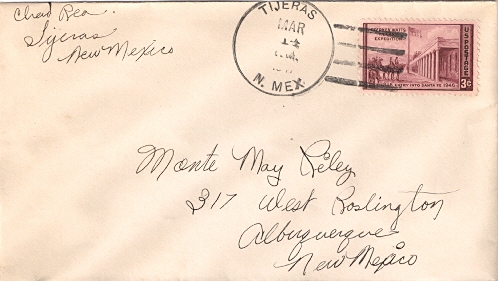 Chad Rea.
Tijeras
New Mexico
TIJERAS
MAR
14
N. MEX
STEPHEN WATTS
KEARNY
EXPEDITION
ENTRY INTO SANTA FE 1846
U.S. POSTAGE
3¢
Monte May Riley
317 West Roslington
Albuquerque
New Mexico